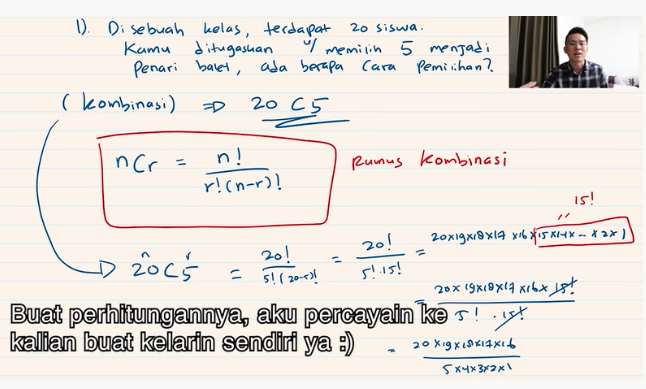 1). Di sebuah kelas, terdapat 20 siswa.
Kamu ditugaskan u/ memilih 5 menjadi
penari balet, ada berapa cara pemilihan?
(kombinasi) ⇒ 20 C 5
nCr = n! / r!(n-r)!
Rumus kombinasi
15!
n r
20C5 = 20! / 5!(20-5)! = 20! / 5!.15! = 20x19x18x17x16x15x14x--x2x1
= 20x19x18x17x16x15! / 5! . 15!
= 20x19x18x17x16 / 5x4x3x2x1
Buat perhitungannya, aku percayain ke
kalian buat kelarin sendiri ya :)